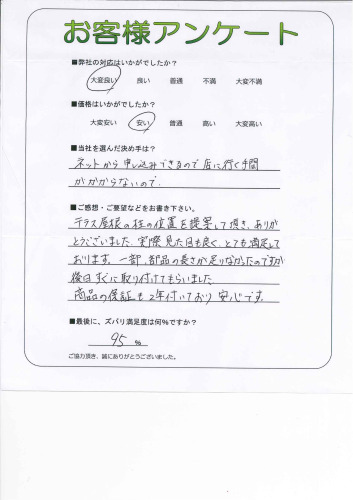 お客様アンケート
■弊社の対応はいかがでしたか？
大変良い　良い　普通　不満　大変不満
■価格はいかがでしたか？
大変安い　安い　普通　高い　大変高い
■当社を選んだ決め手は？
ネットから申し込みできるので店に行く手間
がかからないので.
■ご感想・ご要望などをお書き下さい。
テラス屋根の柱の位置を提案して頂き、ありが
とうございました. 実際見た目も良く、とても満足して
おります。一部、部品の長さが足りなかったのですが
後日すぐに取り付けてもらいました.
商品の保証も2年付いており安心です。
■最後に、ズバリ満足度は何％ですか？
95 %
ご協力頂き、誠にありがとうございました。